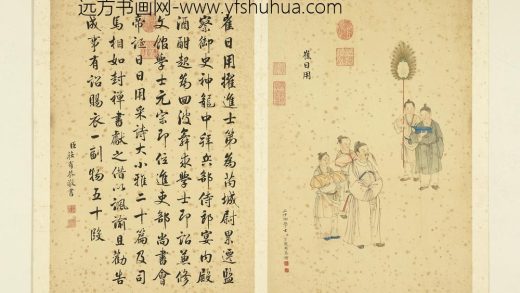 远方书画网 www.yfshuhua.com
崔日用
崔日用擢進士第為芮城尉累遷監
察御史神龍中拜兵部侍郎宴內殿
酒酣起為回波舞求學士即詔兼修
文館學士元宗即位進吏部尚書會
帝誕日日用采詩大小雅二十篇及司
馬相如封禪書獻之借以諷諭且勸告
成事有詔賜衣一副物五十段
敬書